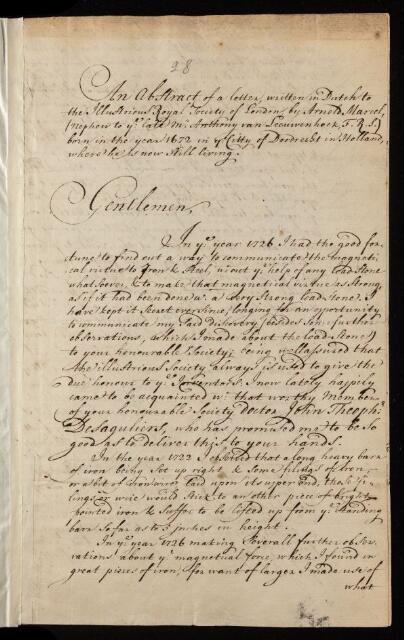 28
An Abstract of a letter, written in Dutch to
the Illustrious Royal Society of London, by Arnold Marcel,
(nephew to ye. late Mr. Anthony van Leeuwenhoek, F.R.S.)
born in the year 1672 in ye City of Dordrecht in Holland,
where he is now still living.
Gentlemen,
In ye. year 1726 I had the good for-
tune to find out a way to communicate the magneti-
cal virtue to Iron & Steel, without ye. help of any Load Stone
whatsoever, & to make that magnetical virtue as strong,
as if it had been done wt. a very strong load Stone. I
have kept it Secret ever since, longing for an opportunity
to communicate my said discovery (besides some further
observations, which I made about the load Stone)
to your honourable Society; being well assured that
the illustrious Society always is used to give the
due honour to ye. Inventors. I now lately happily
came to be acquainted wt. that worthy Member
of your honourable Society Doctor John Theoph:
Desaguliers, who has promised me to be so
good as to deliver this to your hands.
In the year 1722 I observed that a long heavy barr
of iron being set up right & some filings of iron,
or a bit of iron wire laid upon its upper end, those fi-
lings or wire would stick to an other piece of bright
pointed iron & suffer to be lifted up from ye. standing
barr so far as to 3 inches in height.
In ye. year 1726 making severall further obser-
vations about ye magnetical force, which I found in
great pieces of iron, for want of larger I made use of
what